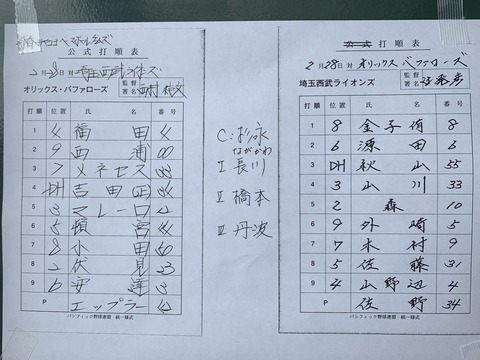 公式打順表
2月28日対 埼玉西武ライオンズ
オリックス・バファローズ 監督署名 西村徳文
打順 位置 氏名 番号
1 4 福田 4
2 9 西浦 00
3 7 メネセス
4 DH 吉田正
5 3 マレーロ
6 5 頓宮 44
7 8 小田 50
8 2 伏見 23
9 6 安達 3
P エップラー
パシフィック野球連盟 統一様式
C:杉永
ながかわ
I 長川
II 橋本
III 丹波
公式打順表
2月28日対 オリックス バファローズ
埼玉西武ライオンズ 監督署名
打順 位置 氏名 番号
1 8 金子侑 8
2 6 源田 6
3 DH 秋山 55
4 3 山川 33
5 2 森 10
6 9 外崎 5
7 7 木村 9
8 5 佐藤 31
9 4 山野辺 4
P 佐野 34
パシフィック野球連盟 統一様式